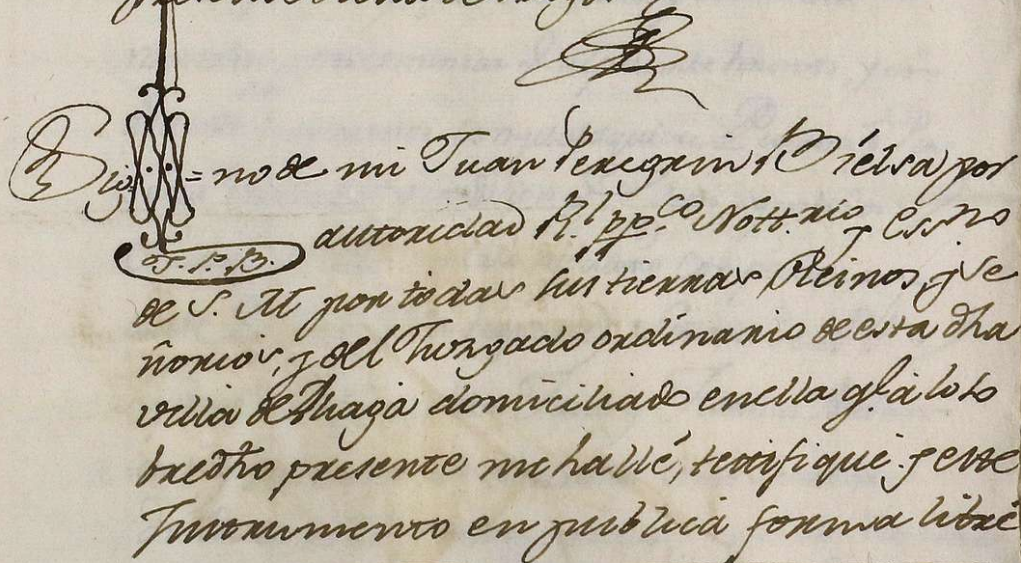 Sig=no de mi Juan Peregrin Bielsa por
autoridad Rl. ppco. Nottrio, y essno
J. P. B.
de S. M por todas sus tierras Reinos, y Se
ñorios, y del Juzgado ordinario de esta dha
villa de Aliaga domiciliado en ella q.e á lo so
bredho presente me hallé, testifiqué y este
Instrumento en publica forma libré